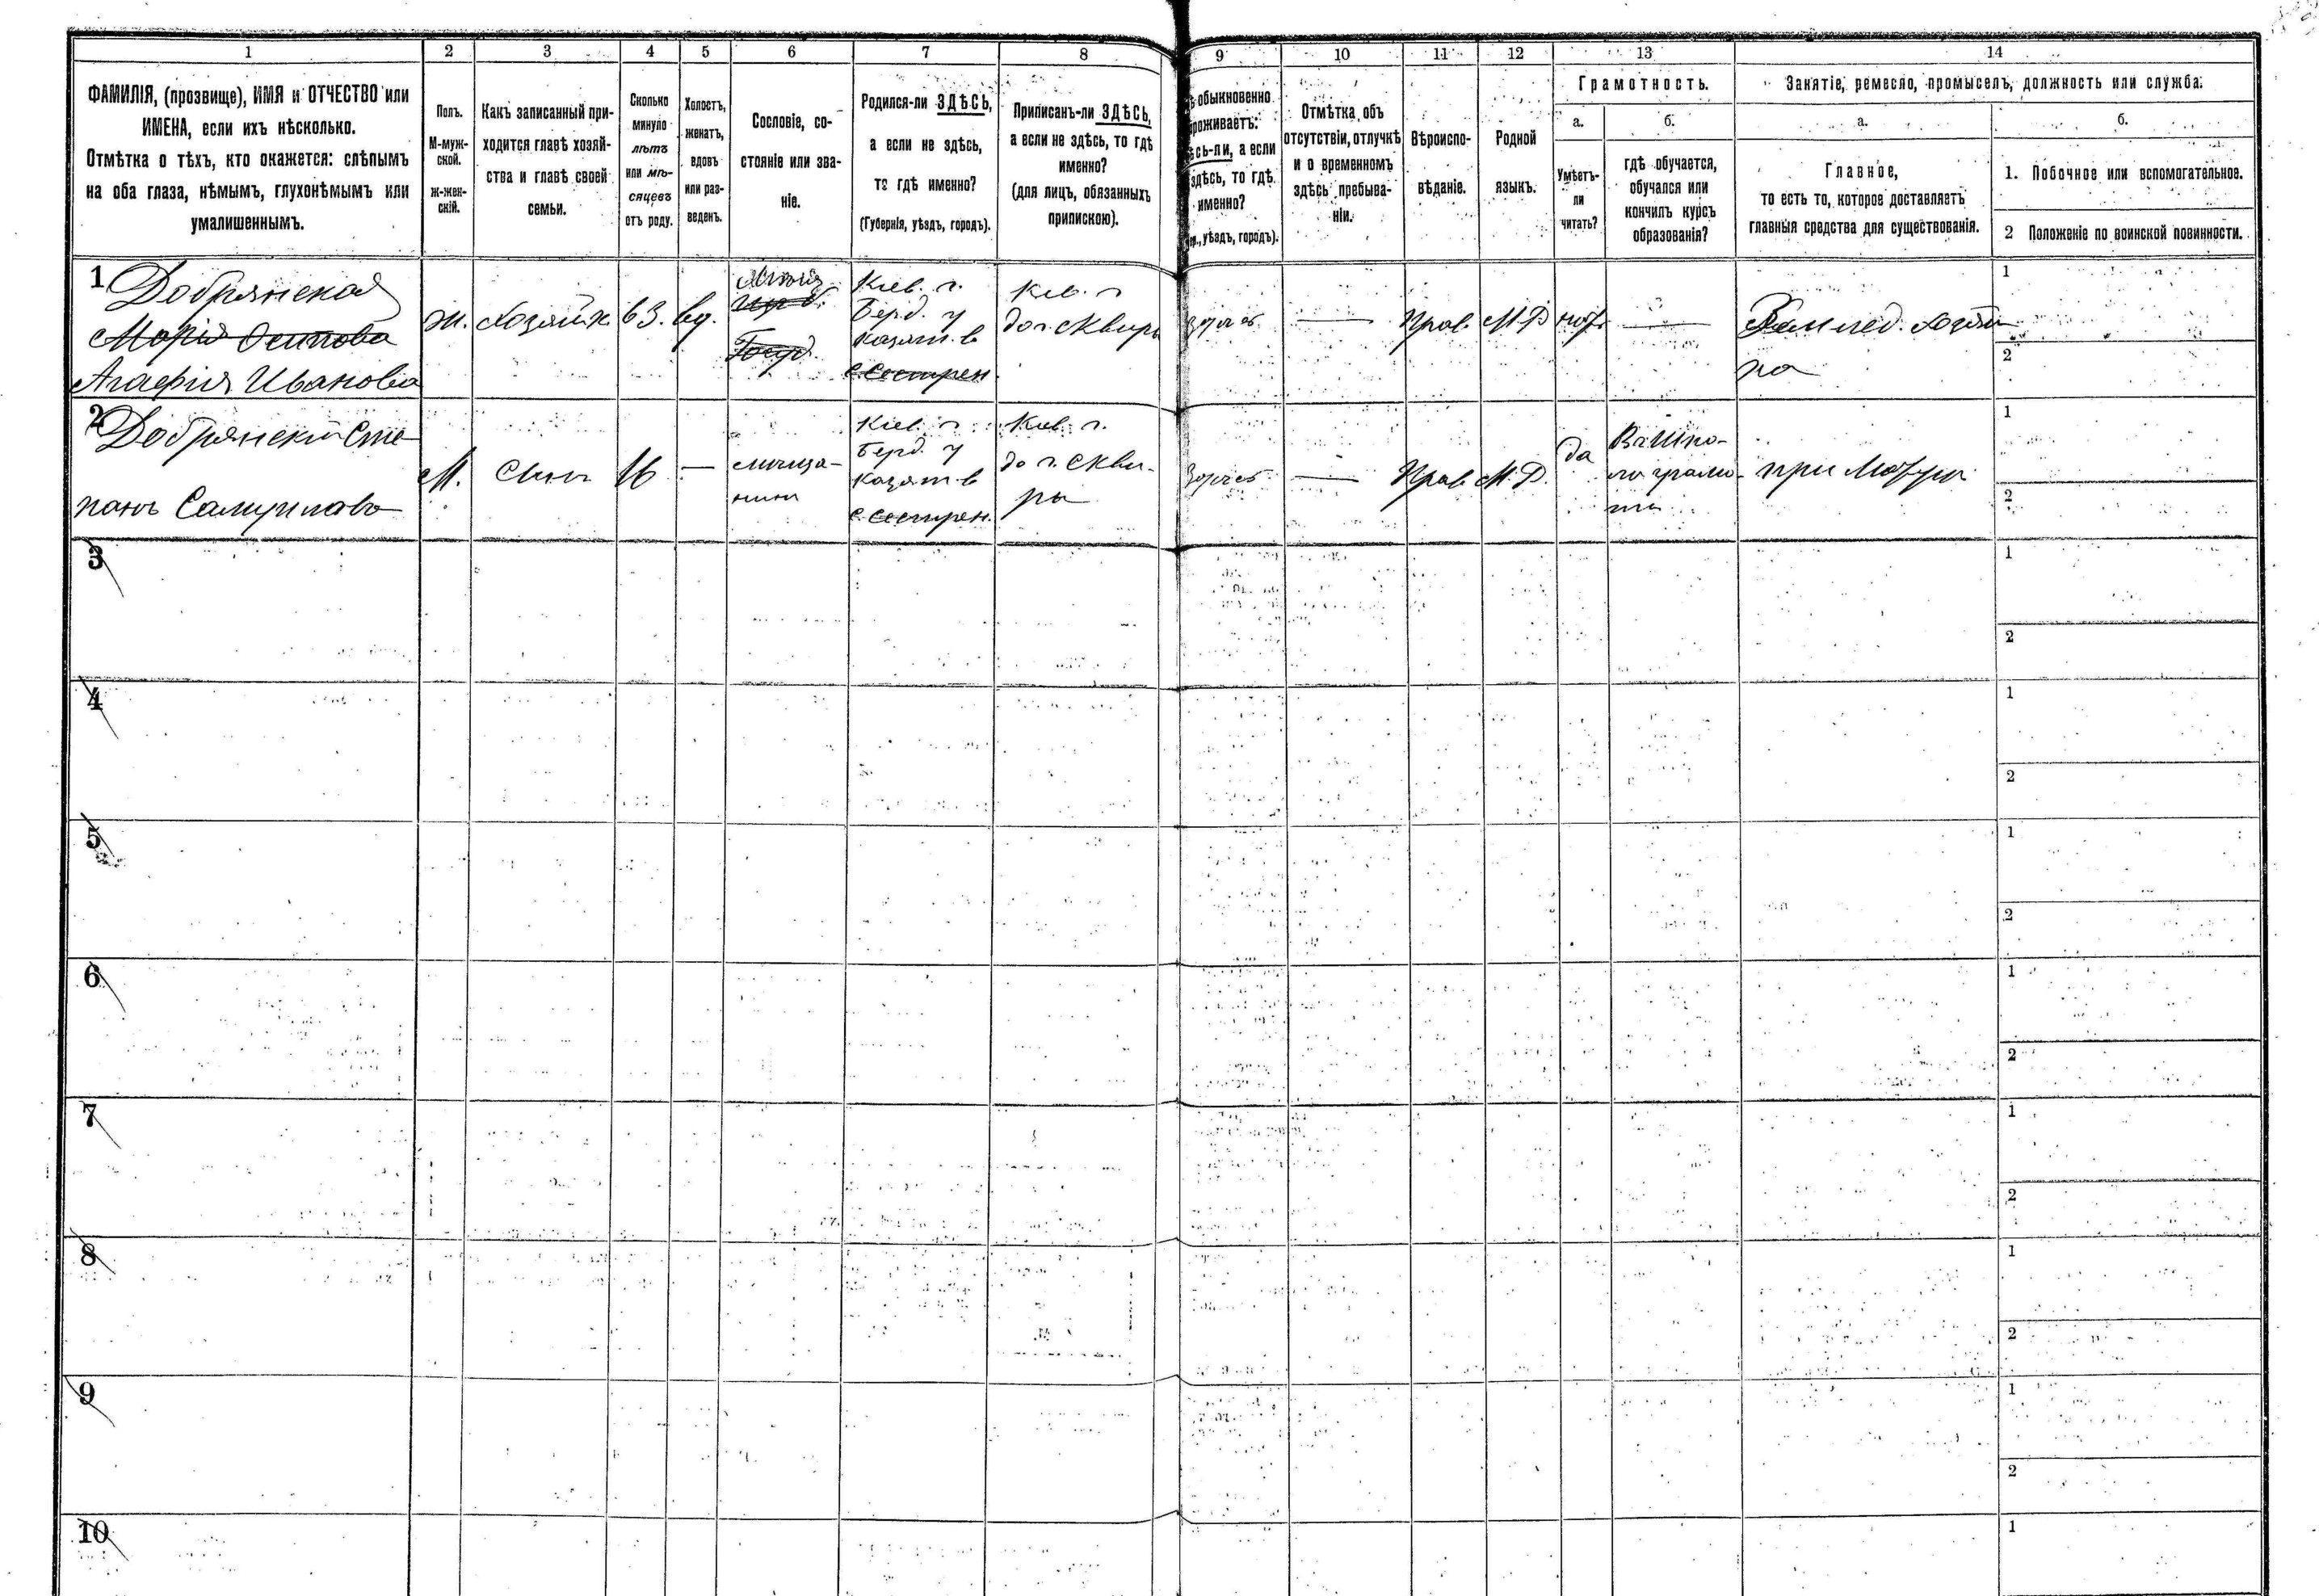 1 2 3 4 5 6 7 8 9 10 11 12 13 14
ФАМИЛІЯ, (прозвище), ИМЯ и ОТЧЕСТВО или
ИМЕНА, если ихъ нѣсколько.
Отмѣтка о тѣхъ, кто окажется: слѣпымъ
на оба глаза, нѣмымъ, глухонѣмымъ или
умалишеннымъ.
Полъ.
М-муж-
ской.
ж-жен-
скій.
Какъ записанный при-
ходится главѣ хозяй-
ства и главѣ своей
семьи.
Сколько
минуло
лѣтъ
или мѣ-
сяцевъ
отъ роду.
Холостъ,
женатъ,
вдовъ
или раз-
веденъ.
Сословіе, со-
стояніе или зва-
ніе.
Родился-ли ЗДѢСЬ,
а если не здѣсь,
то гдѣ именно?
(Губернія, уѣздъ, городъ).
Приписанъ-ли ЗДѢСЬ,
а если не здѣсь, то гдѣ
именно?
(для лицъ, обязанныхъ
припискою).
обыкновенно
роживаетъ:
сь-ли, а если
здѣсь, то гдѣ
именно?
уѣздъ, городъ).
Отмѣтка объ
отсутствіи, отлучкѣ
и о временномъ
здѣсь пребыва-
ніи.
Вѣроиспо-
вѣданіе.
Родной
языкъ.
Грамотность.
а.
Умѣетъ-
ли
читать?
б.
гдѣ обучается,
обучался или
кончилъ курсъ
образованія?
Занятіе, ремесло, промыселъ, должность или служба.
а.
Главное,
то есть то, которое доставляетъ
главныя средства для существованія.
б.
1. Побочное или вспомогательное.
2 Положеніе по воинской повинности.
1
Добрянская
Марія Осипова
Агафія Иванова
ж.
Хозяйк
63.
вд.
Кіев. г.
Берд. у
Казат. в
Кіев. г
до г. Сквиры
—
Прав.
М Р
—
Землед. Хозяй
ка
1
2
2
Добрянскій Сте
панъ Самуилов
М.
Сынъ
16
—
мѣща-
нинъ
Кіев. г.
Берд. у
Казат. в
Кіев. г.
до г. Скви-
ры
—
Прав
М. Р.
да
при Матери
1
2
3
1
2
4
1
2
5
1
2
6
1
2
7
1
2
8
1
2
9
1
2
10
1